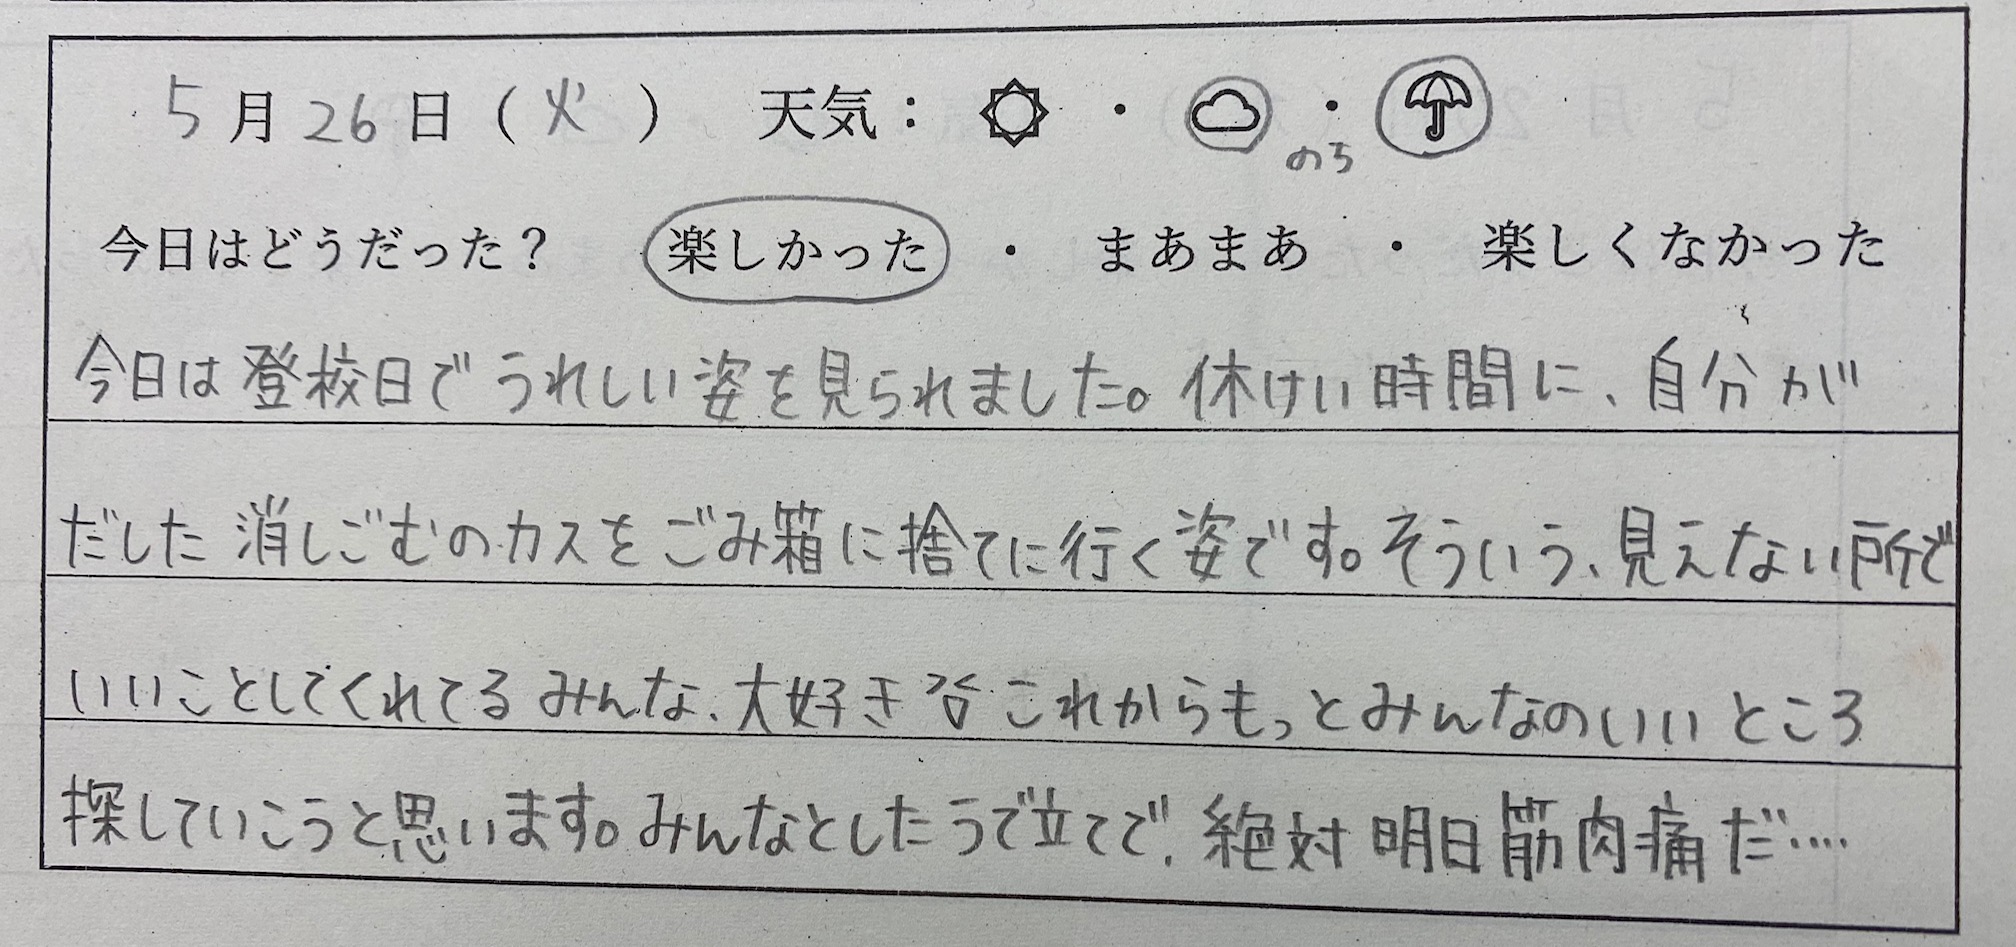 5月26日(火) 天気: ・ のち ・
今日はどうだった? 楽しかった ・ まあまあ ・ 楽しくなかった
今日は登校日でうれしい姿を見られました。休けい時間に、自分が
だした消しごむのカスをごみ箱に捨てに行く姿です。そういう、見えない所で
いいことしてくれてるみんな、大好き これからもっとみんなのいいところ
探していこうと思います。みんなとしたうで立てで、絶対明日筋肉痛だ….